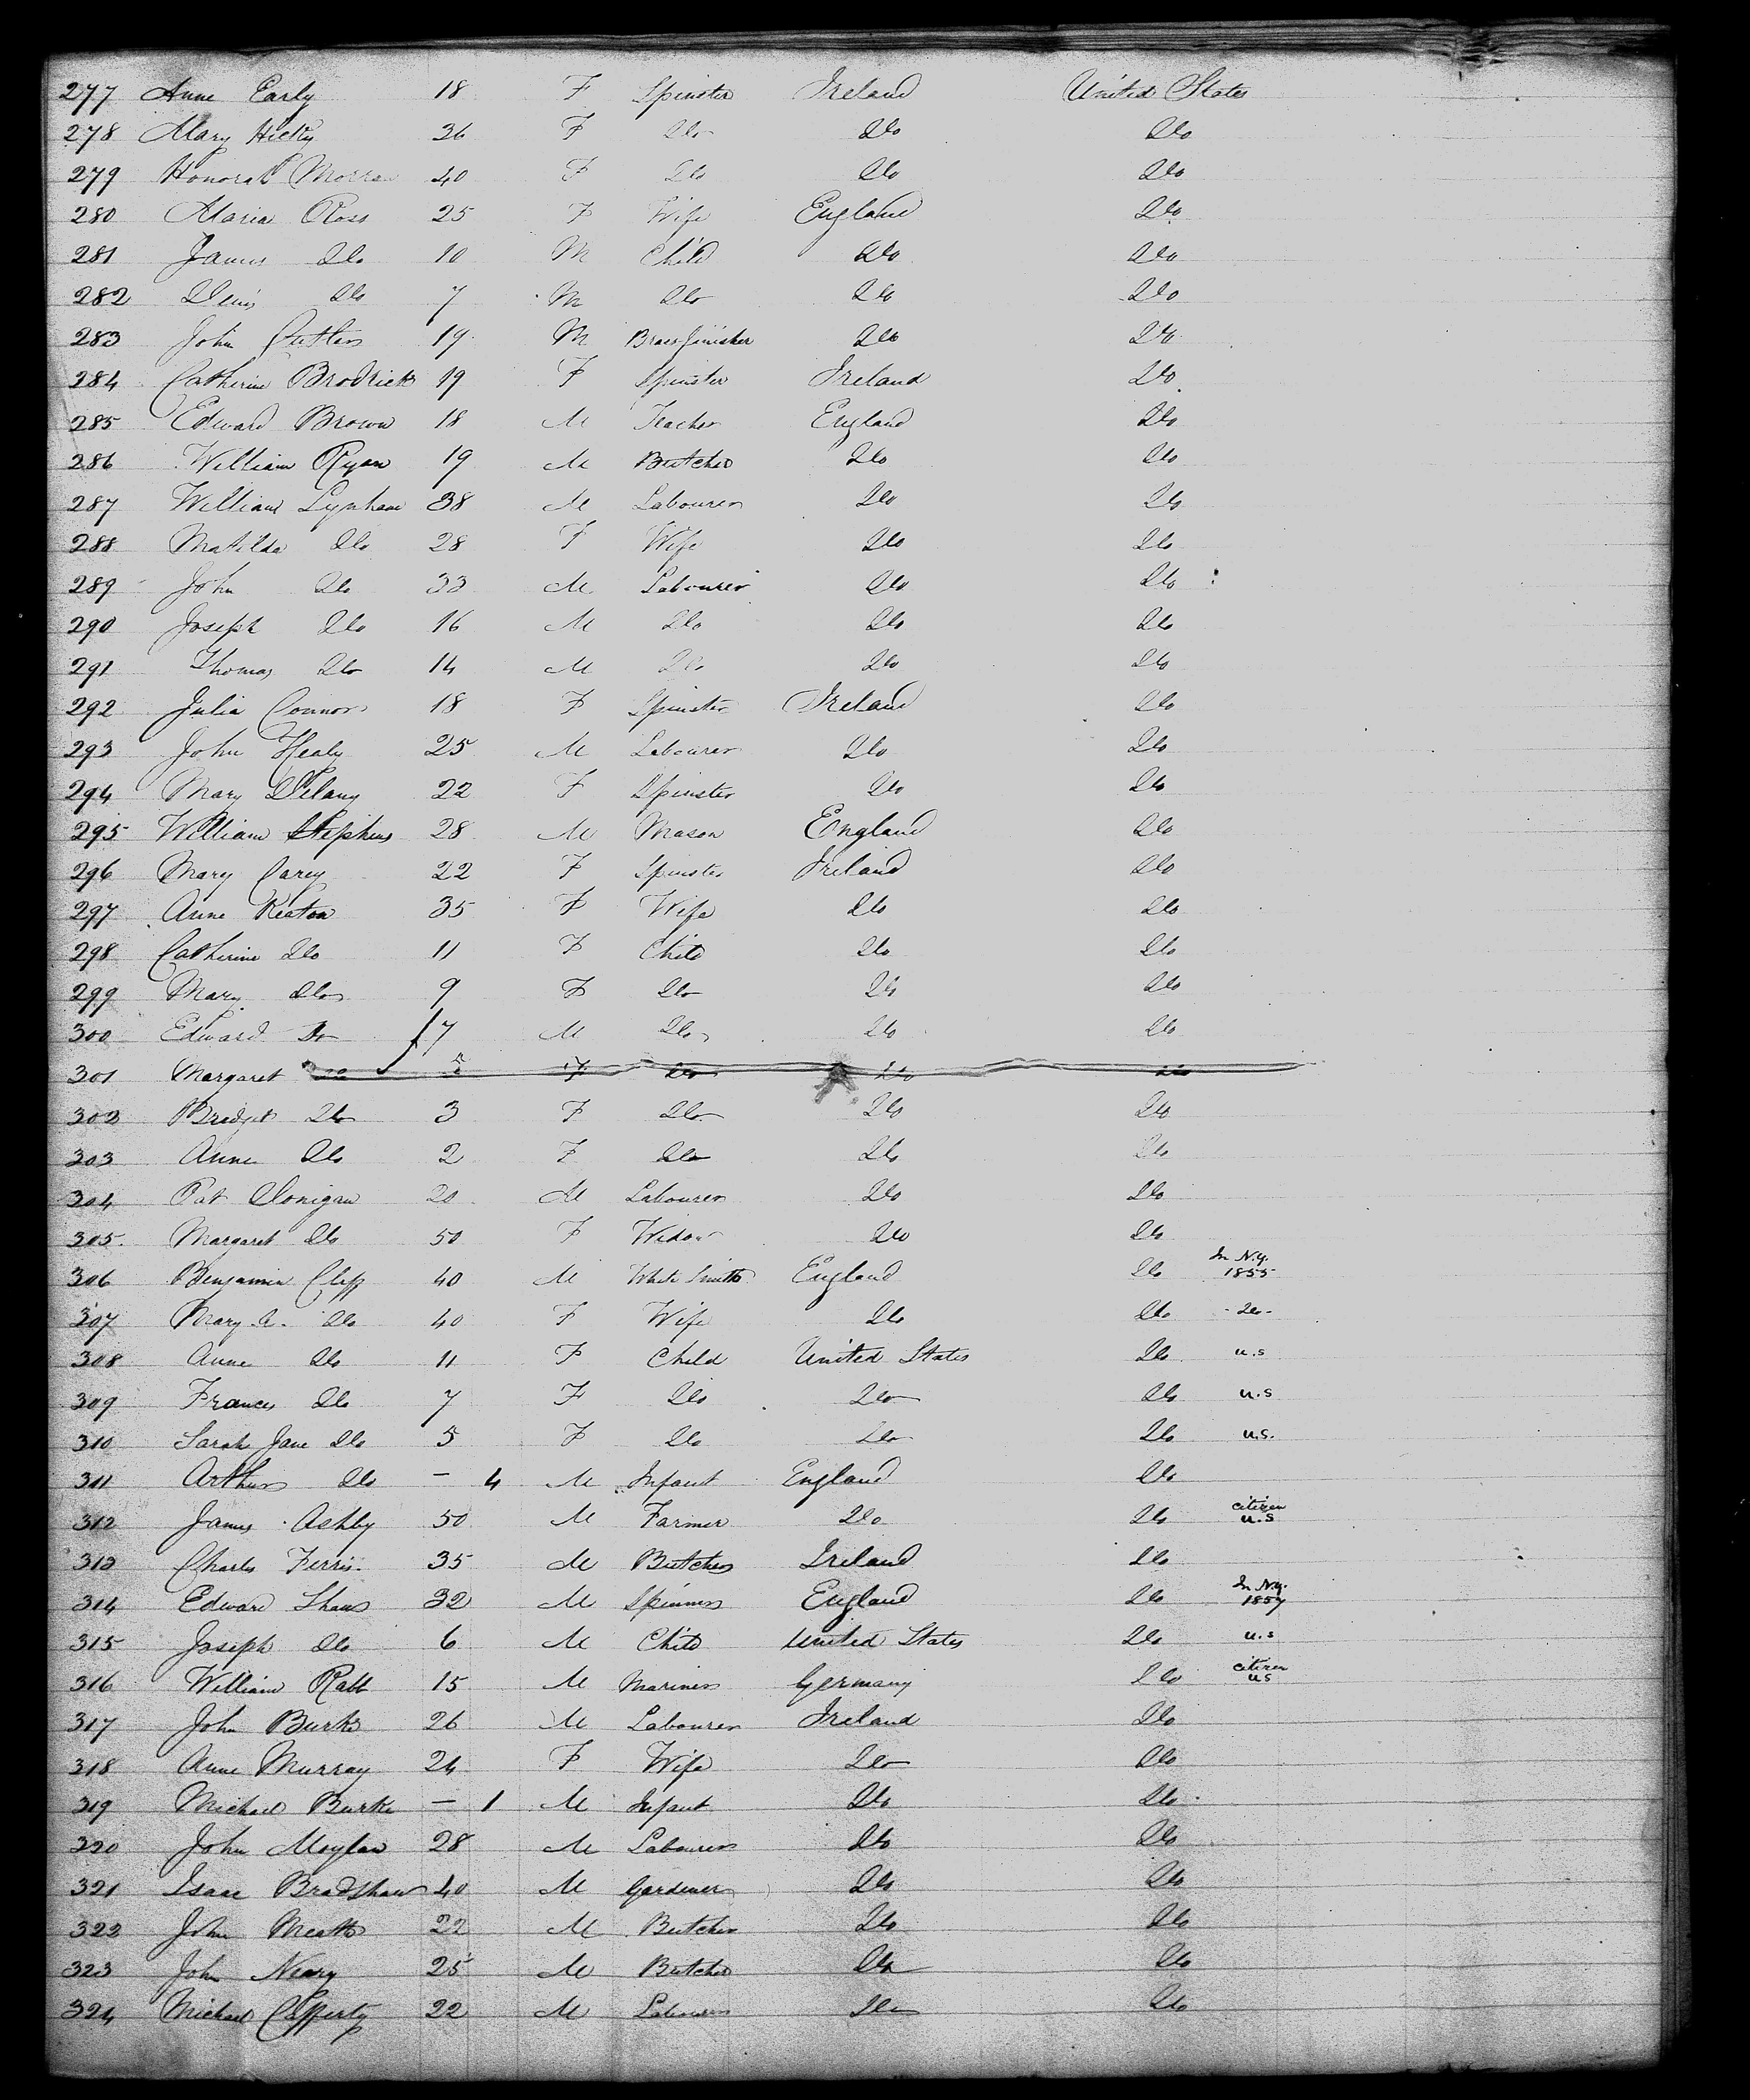 277 Anne Early 18 F Spinster Ireland United States
278 Mary Hicky 36 F Do Do Do
279 Honorah Morran 40 F Do Do Do
280 Maria Ross 25 F Wife England Do
281 James Do 10 M Child Do Do
282 Denis Do 7 M Do Do Do
283 John Cutler 19 M Brass finisher Do Do
284 Catherine Brodrick 19 F Spinster Ireland Do
285 Edward Brown 18 M Teacher England Do
286 William Ryan 19 M Butcher Do Do
287 William Lynham 38 M Labourer Do Do
288 Matilda Do 28 F Wife Do Do
289 John Do 33 M Labourer Do Do
290 Joseph Do 16 M Do Do Do
291 Thomas Do 14 M Do Do Do
292 Julia Connor 18 F Spinster Ireland Do
293 John Healy 25 M Labourer Do Do
294 Mary Delany 22 F Spinster Do Do
295 William Stephens 28 M Mason England Do
296 Mary Carey 22 F Spinster Ireland Do
297 Anne Keaton 35 F Wife Do Do
298 Catherine Do 11 F Child Do Do
299 Mary Do 9 F Do Do Do
300 Edward Do 7 M Do Do Do
301 Margaret Do 5 F Do Do Do
302 Bridget Do 3 F Do Do Do
303 Anne Do 2 F Do Do Do
304 Pat Donigan 20 M Labourer Do Do
305 Margaret Do 50 F Widow Do Do
306 Benjamin Cliff 40 M White Smith England Do In N.Y. 1855
307 Mary A. Do 40 F Wife Do Do Do
308 Anne Do 11 F Child United States Do U.S
309 Frances Do 7 F Do Do Do U.S
310 Sarah Jane Do 5 F Do Do Do U.S.
311 Arthur Do - 4 M Infant England Do
312 James Ashby 50 M Farmer Do Do citizen U.S
313 Charles Ferris 35 M Butcher Ireland Do
314 Edward Shaw 32 M Spinner England Do In N.Y. 1857
315 Joseph Do 6 M Child United States Do U.S
316 William Rabb 15 M Mariner Germany Do citizen US
317 John Burke 26 M Labourer Ireland Do
318 Anne Murray 24 F Wife Do Do
319 Michael Burke - 1 M Infant Do Do
320 John Moylan 28 M Labourer Do Do
321 Isaac Bradshaw 40 M Gardener Do Do
322 John Meath 22 M Butcher Do Do
323 John Neary 25 M Butcher Do Do
324 Michael Cafferty 22 M Labourer Do Do